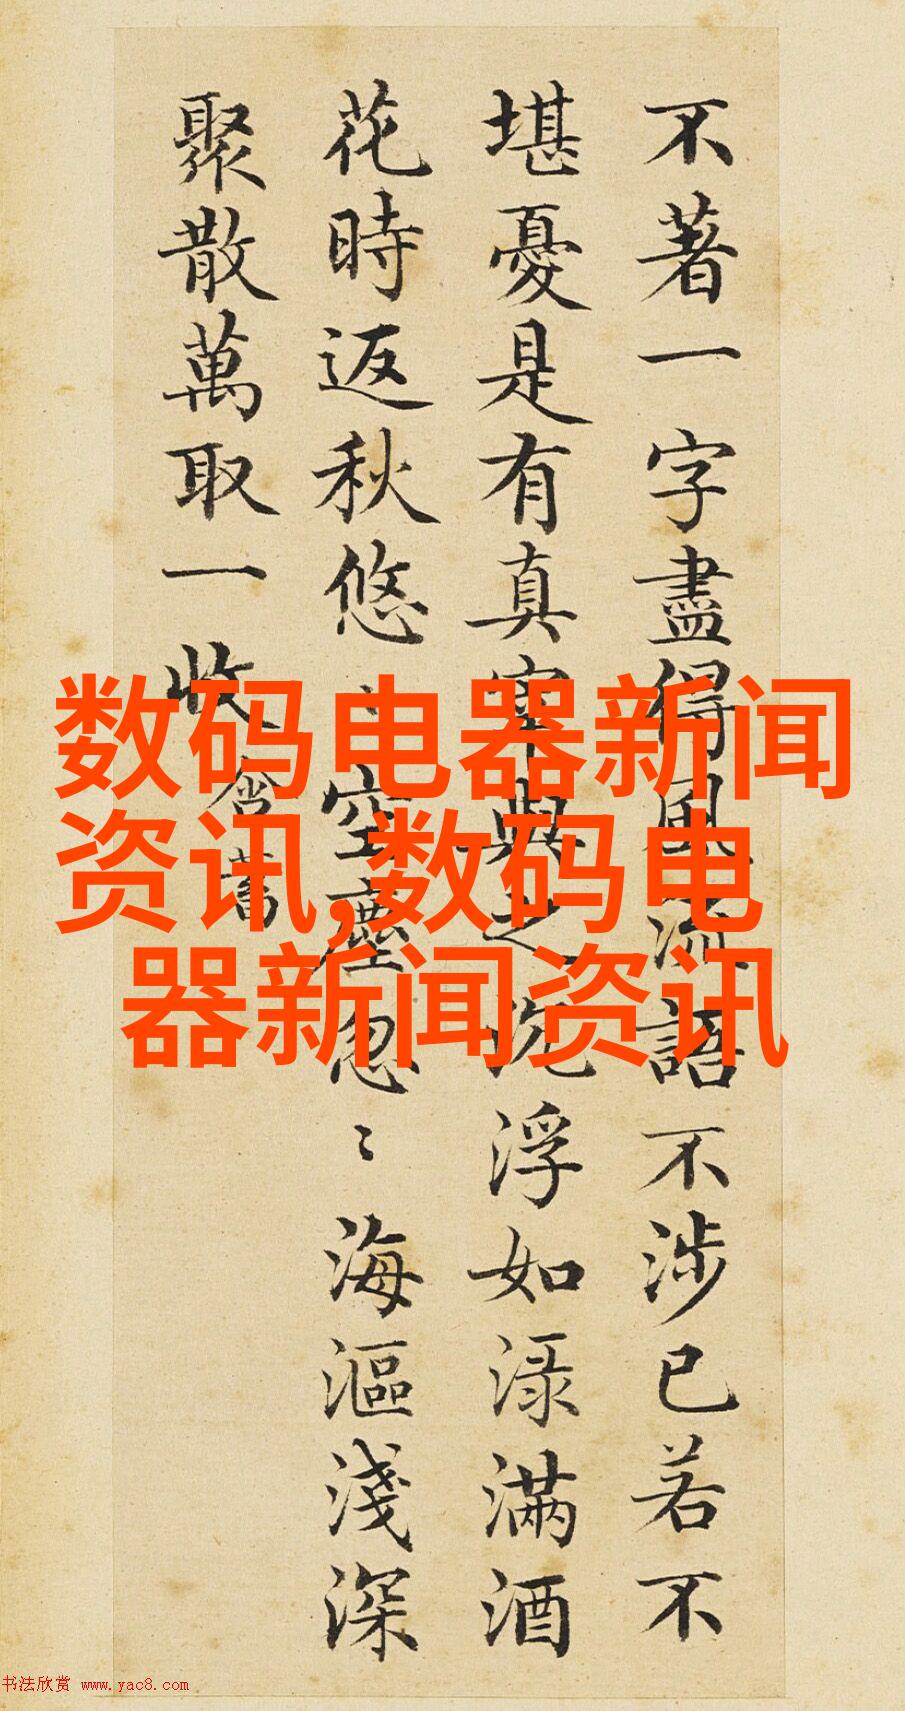 不著一字盡得風流語不涉已若不
堪憂是有真宰與之沈浮如淥滿酒
花時返秋悠〻空塵忽〻海漚淺深
聚散萬取一收
含蓄
数码电器新闻
资讯,数码电
器新闻资讯
书法欣赏 www.yac8.com